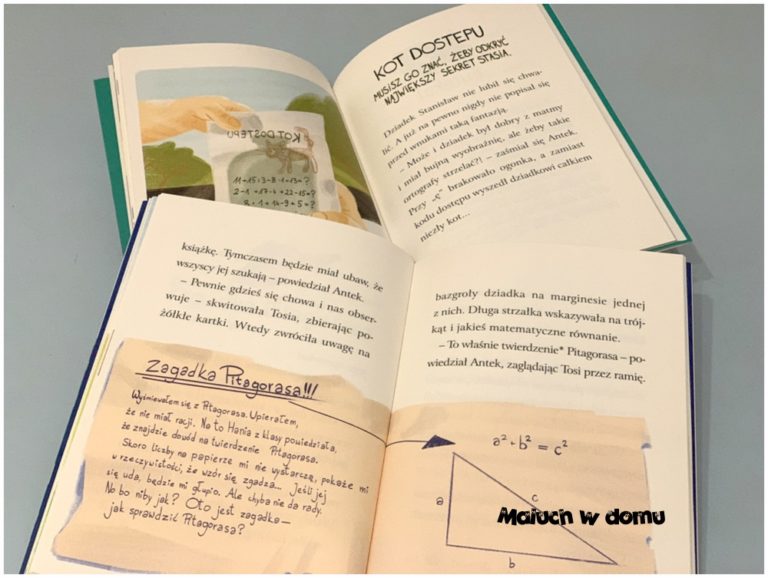 KOT DOSTEPU
11+15+3-8-1+13=?
2-1+17-4+22-15=?
8+1+14-9+5=?
KOT DOSTEPU
MUSISZ GO ZNAĆ, ŻEBY ODKRYĆ
NAJWIĘKSZY SEKRET STASIA.
Dziadek Stanisław nie lubił się chwa-
lić. A już na pewno nigdy nie popisał się
przed wnukami taką fantazją.
– Może i dziadek był dobry z matmy
i miał bujną wyobraźnię, ale żeby takie
ortografy strzelać?! – zaśmiał się Antek.
Przy „ę” brakowało ogonka, a zamiast
kodu dostępu wyszedł dziadkowi całkiem
niezły kot...
książkę. Tymczasem będzie miał ubaw, że
wszyscy jej szukają – powiedział Antek.
– Pewnie gdzieś się chowa i nas obser-
wuje – skwitowała Tosia, zbierając po-
żółkłe kartki. Wtedy zwróciła uwagę na
Zagadka Pitagorasa!!!
Wyśmiewałem się z Pitagorasa. Upierałem,
że nie miał racji. Na to Hania z klasy powiedziała,
że znajdzie dowód na twierdzenie Pitagorasa.
Skoro liczby na papierze mi nie wystarczą, pokaże mi
w rzeczywistości, że wzór się zgadza... Jeśli jej
się uda, będzie mi głupio. Ale chyba nie da rady.
No bo niby jak? Oto jest zagadka–
jak sprawdzić Pitagorasa?
bazgroły dziadka na marginesie jednej
z nich. Długa strzałka wskazywała na trój-
kąt i jakieś matematyczne równanie.
– To właśnie twierdzenie* Pitagorasa – po-
wiedział Antek, zaglądając Tosi przez ramię.
a² + b² = c²
a
c
b
Maluch w domu